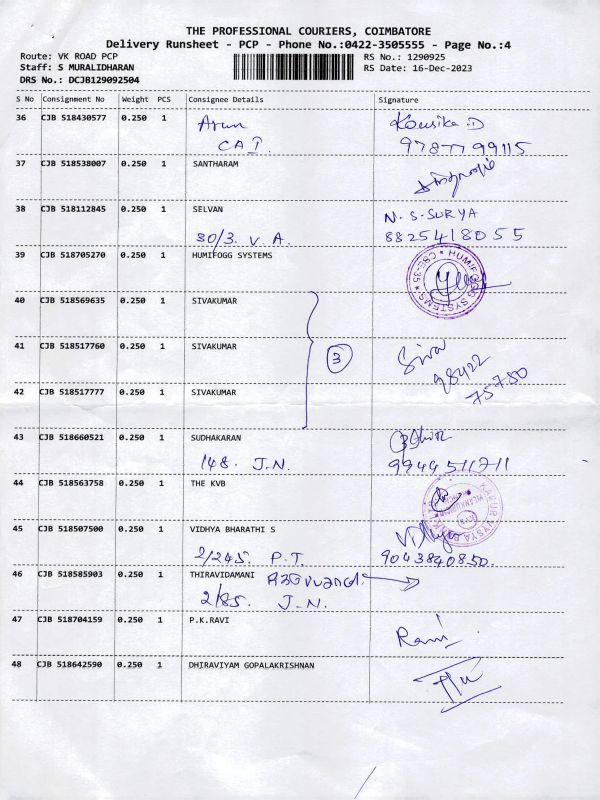 THE PROFESSIONAL COURIERS, COIMBATORE
Delivery Runsheet - PCP - Phone No.:0422-3505555 - Page No.:4
Route: VK ROAD PCP
Staff: S MURALIDHARAN
DRS No.: DCJB129092504
RS No.: 1290925
RS Date: 16-Dec-2023
S No Consignment No Weight PCS Consignee Details Signature
36 CJB 518430577 0.250 1 Arun Kousika.D
CAI. 9787799115
37 CJB 518538007 0.250 1 SANTHARAM
38 CJB 518112845 0.250 1 SELVAN N.S.SURYA
30/3. V.A. 8825418055
39 CJB 518705270 0.250 1 HUMIFOGG SYSTEMS
HUMIFOGG SYSTEMS * CBE-35 *
40 CJB 518569635 0.250 1 SIVAKUMAR
41 CJB 518517760 0.250 1 SIVAKUMAR 3 Siva
98422
75750
42 CJB 518517777 0.250 1 SIVAKUMAR
43 CJB 518660521 0.250 1 SUDHAKARAN
148. J.N. 9944511711
44 CJB 518563758 0.250 1 THE KVB
KARUR VYSYA BANK
45 CJB 518507500 0.250 1 VIDHYA BHARATHI S Vidhya
2/245. P.T. 9043840850.
46 CJB 518585903 0.250 1 THIRAVIDAMANI
2/85. J.N.
47 CJB 518704159 0.250 1 P.K.RAVI Ravi
48 CJB 518642590 0.250 1 DHIRAVIYAM GOPALAKRISHNAN